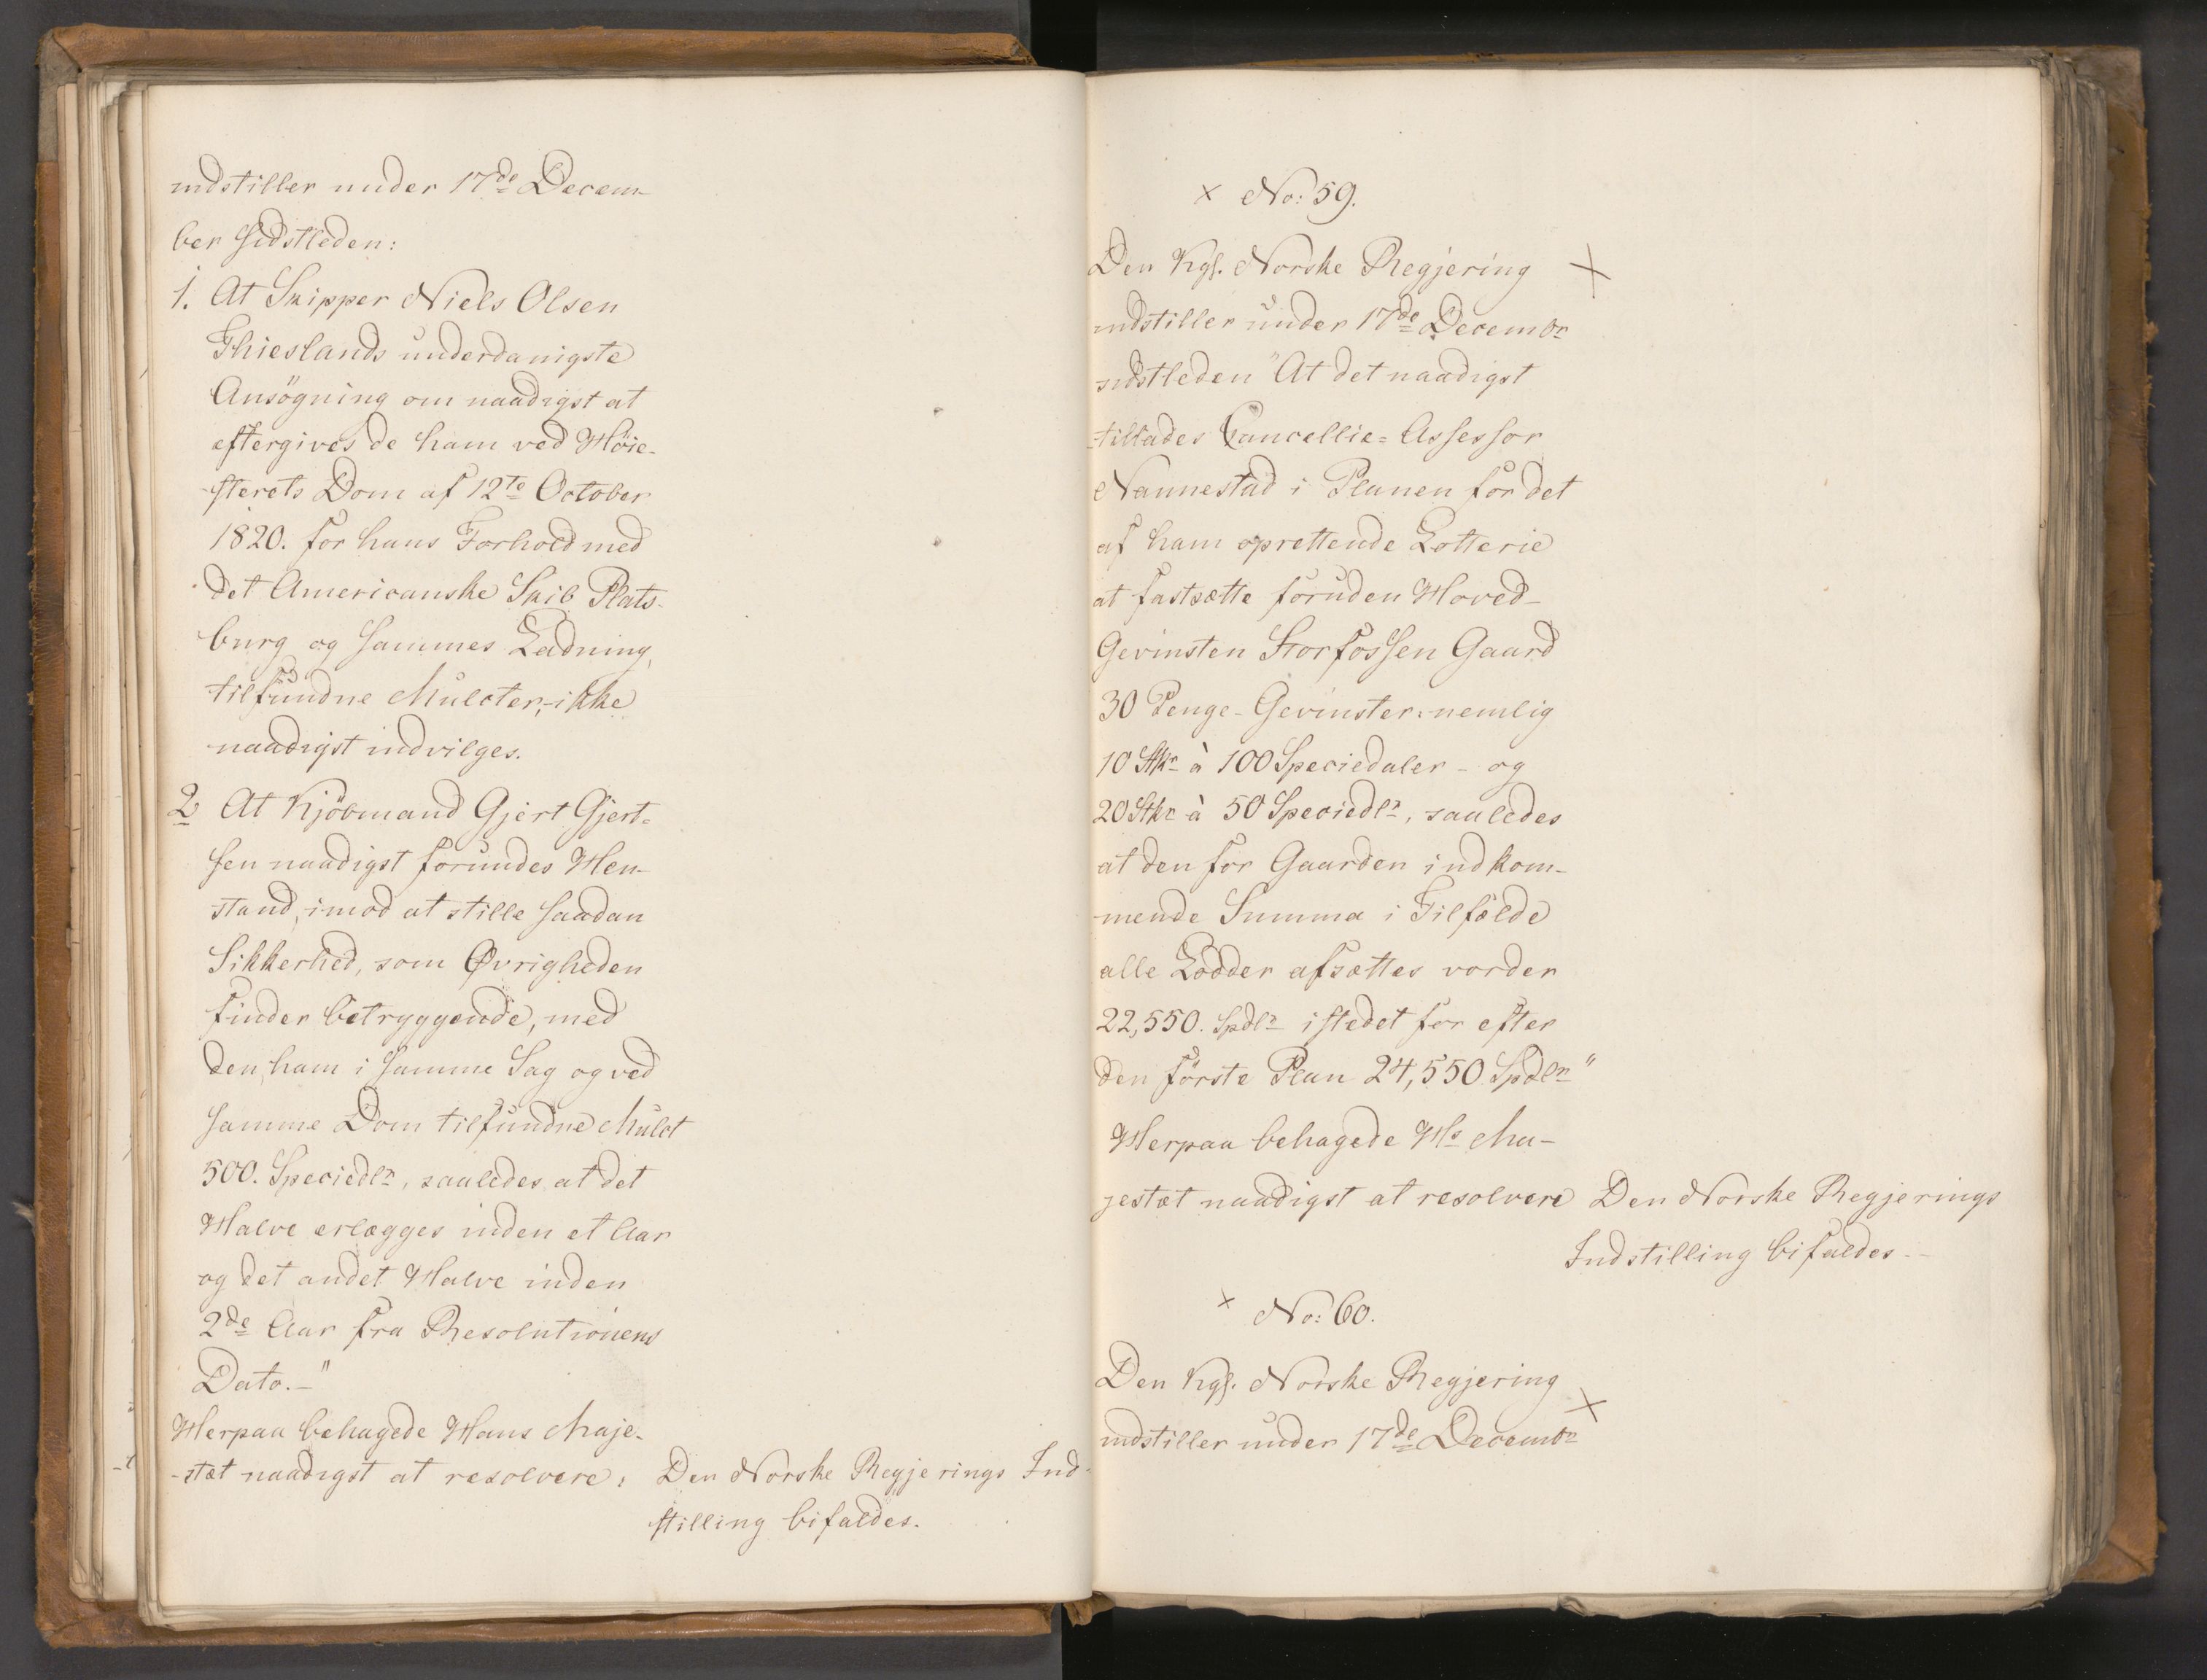 indstiller under 17de Decem-
ber sidstleden:
1. At Skipper Niels Olsen
Thieslands underdanigste
Ansögning om naadigst at
eftergives de ham ved Höie-
sterets Dom af 12te October
1820. for hans Forhold med
det Americanske Skib Plats-
burg og sammes Ladning,
tilfundne Mulcter, ikke
naadigst indvilges.
2 At Kjöbmand Gjert Gjert-
sen naadigst forundes Hen-
stand, imod at stille saadan
Sikkerhed, som Øvrigheden
finder betryggende, med
den ham i samme Sag og ved
samme Dom tilfundne Mulct
500. Speciedlr, saaledes at det
Halve erlægges inden et Aar
og det andet Halve inden
2de Aar fra Resolutionens
Dato.-"
Herpaa behagede Hans Maje-
stæt naadigst at resolvere: Den Norske Regjerings Ind-
stilling bifaldes.
x No: 59.
Den Kgl. Norske Regjering x
indstiller under 17de Decembr
sidstleden "At det naadigst
tillades Cancellie-Assessor
Nannestad i Planen for det
af ham oprettende Lotterie
at fastsætte foruden Hoved-
Gevinsten Storfossen Gaard
30 Penge-Gevinster: nemlig
10 Stkr à 100 Speciedaler - og
20 Stkr à 50 Speciedlr, saaledes
at den for Gaarden indkom-
mende Summa i Tilfælde
alle Lodder afsættes vorder
22,550. Spdlr istedet for efter
den förste Plan 24,550 Spdlr"
Herpaa behagede Hs Ma-
jestæt naadigst at resolvere Den Norske Regjerings
Indstilling bifaldes.-
x No: 60.
Den Kgl. Norske Regjering x
indstiller under 17de Decembr